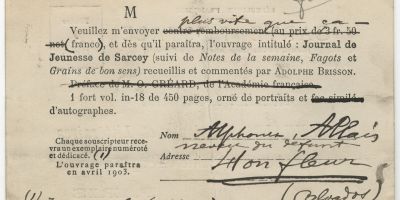 M
plus vite que ça
Veuillez m'envoyer contre remboursement (au prix de 3 fr. 50
net franco), et dès qu'il paraîtra, l'ouvrage intitulé : Journal de
Jeunesse de Sarcey (suivi de Notes de la semaine, Fagots et
Grains de bon sens) recueillis et commentés par ADOLPHE BRISSON.
Préface de M. O. GRÉARD, de l'Académie française
1 fort vol. in-18 de 450 pages, orné de portraits et fac-similé
d'autographes.
Chaque souscripteur rece-
vra un exemplaire numéroté
et dédicacé. (1)
L'ouvrage paraîtra
en avril 1903.
Nom Alphonse Allais
neveu du défunt
Adresse Honfleur
(Calvados)
(1)